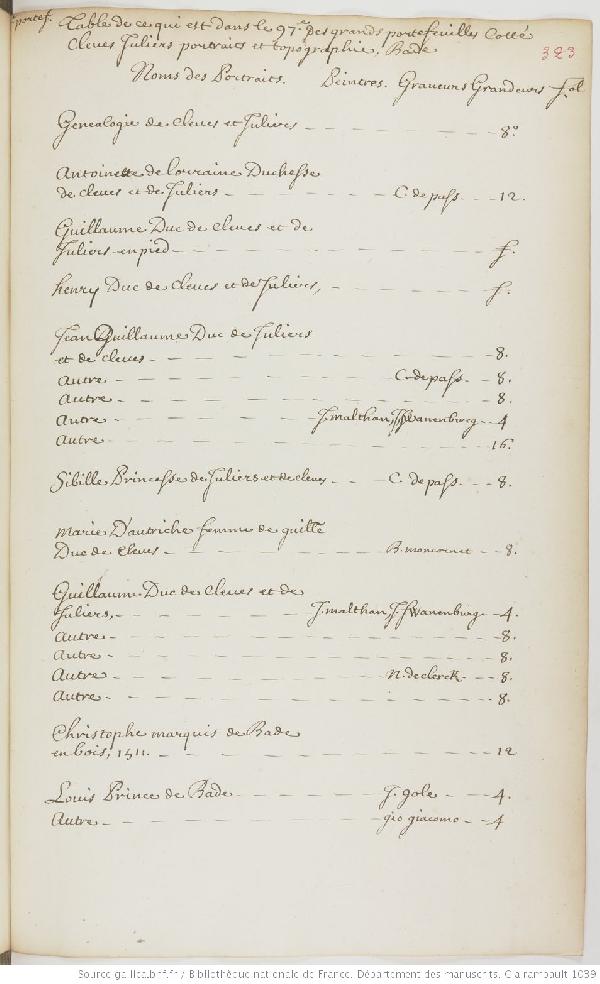 portef. Table de ce qui est dans le 97.e des grands portefeuilles Cotté
Cleves Juliers portraits et topographie, Bade
323
Noms des Portraits. Peintres. Graveurs Grandeurs fol
Genealogie de Cleves et Juliers — 8º
Antoinette de Lorraine Duchesse
de Cleves et de Juliers — C. de pass — 12.
Guillaume Duc de Cleves et de
Juliers en pied — f.
henry Duc de Cleves et de Juliers, — f.
Jean Guillaume Duc de Juliers
et de Cleves — 8.
Autre — C. de pass. — 8.
Autre — 8.
Autre — J. malthan, J. Swanenburg — 4
Autre — 16.
Sibille Princesse de Juliers et de Cleves — C. de pass. — 8.
Marie D'autriche femme de guille
Duc de Cleves — B. moncornet — 8.
Guillaume Duc de Cleves et de
Juliers, — J. malthan J. Swanenburg — 4.
Autre — 8.
Autre — 8.
Autre — N. de clerck — 8.
Autre — 8.
Christophe marquis de Bade
en bois, 1511. — 12
Louis Prince de Bade — J. gole — 4.
Autre — gio giacomo — 4
Source gallica.bnf.fr / Bibliothèque nationale de France. Département des manuscrits. Clairambault 1039